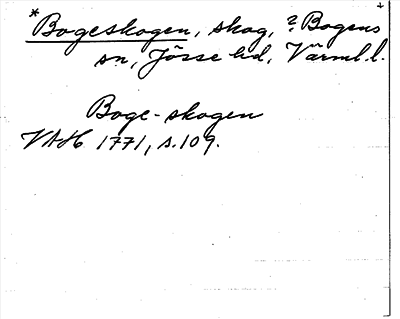 *Bogeskogen, skog, ? Bogens
sn, Jösse hd, Värml. l.
Boge-skogen
VAH 1771, s. 109.